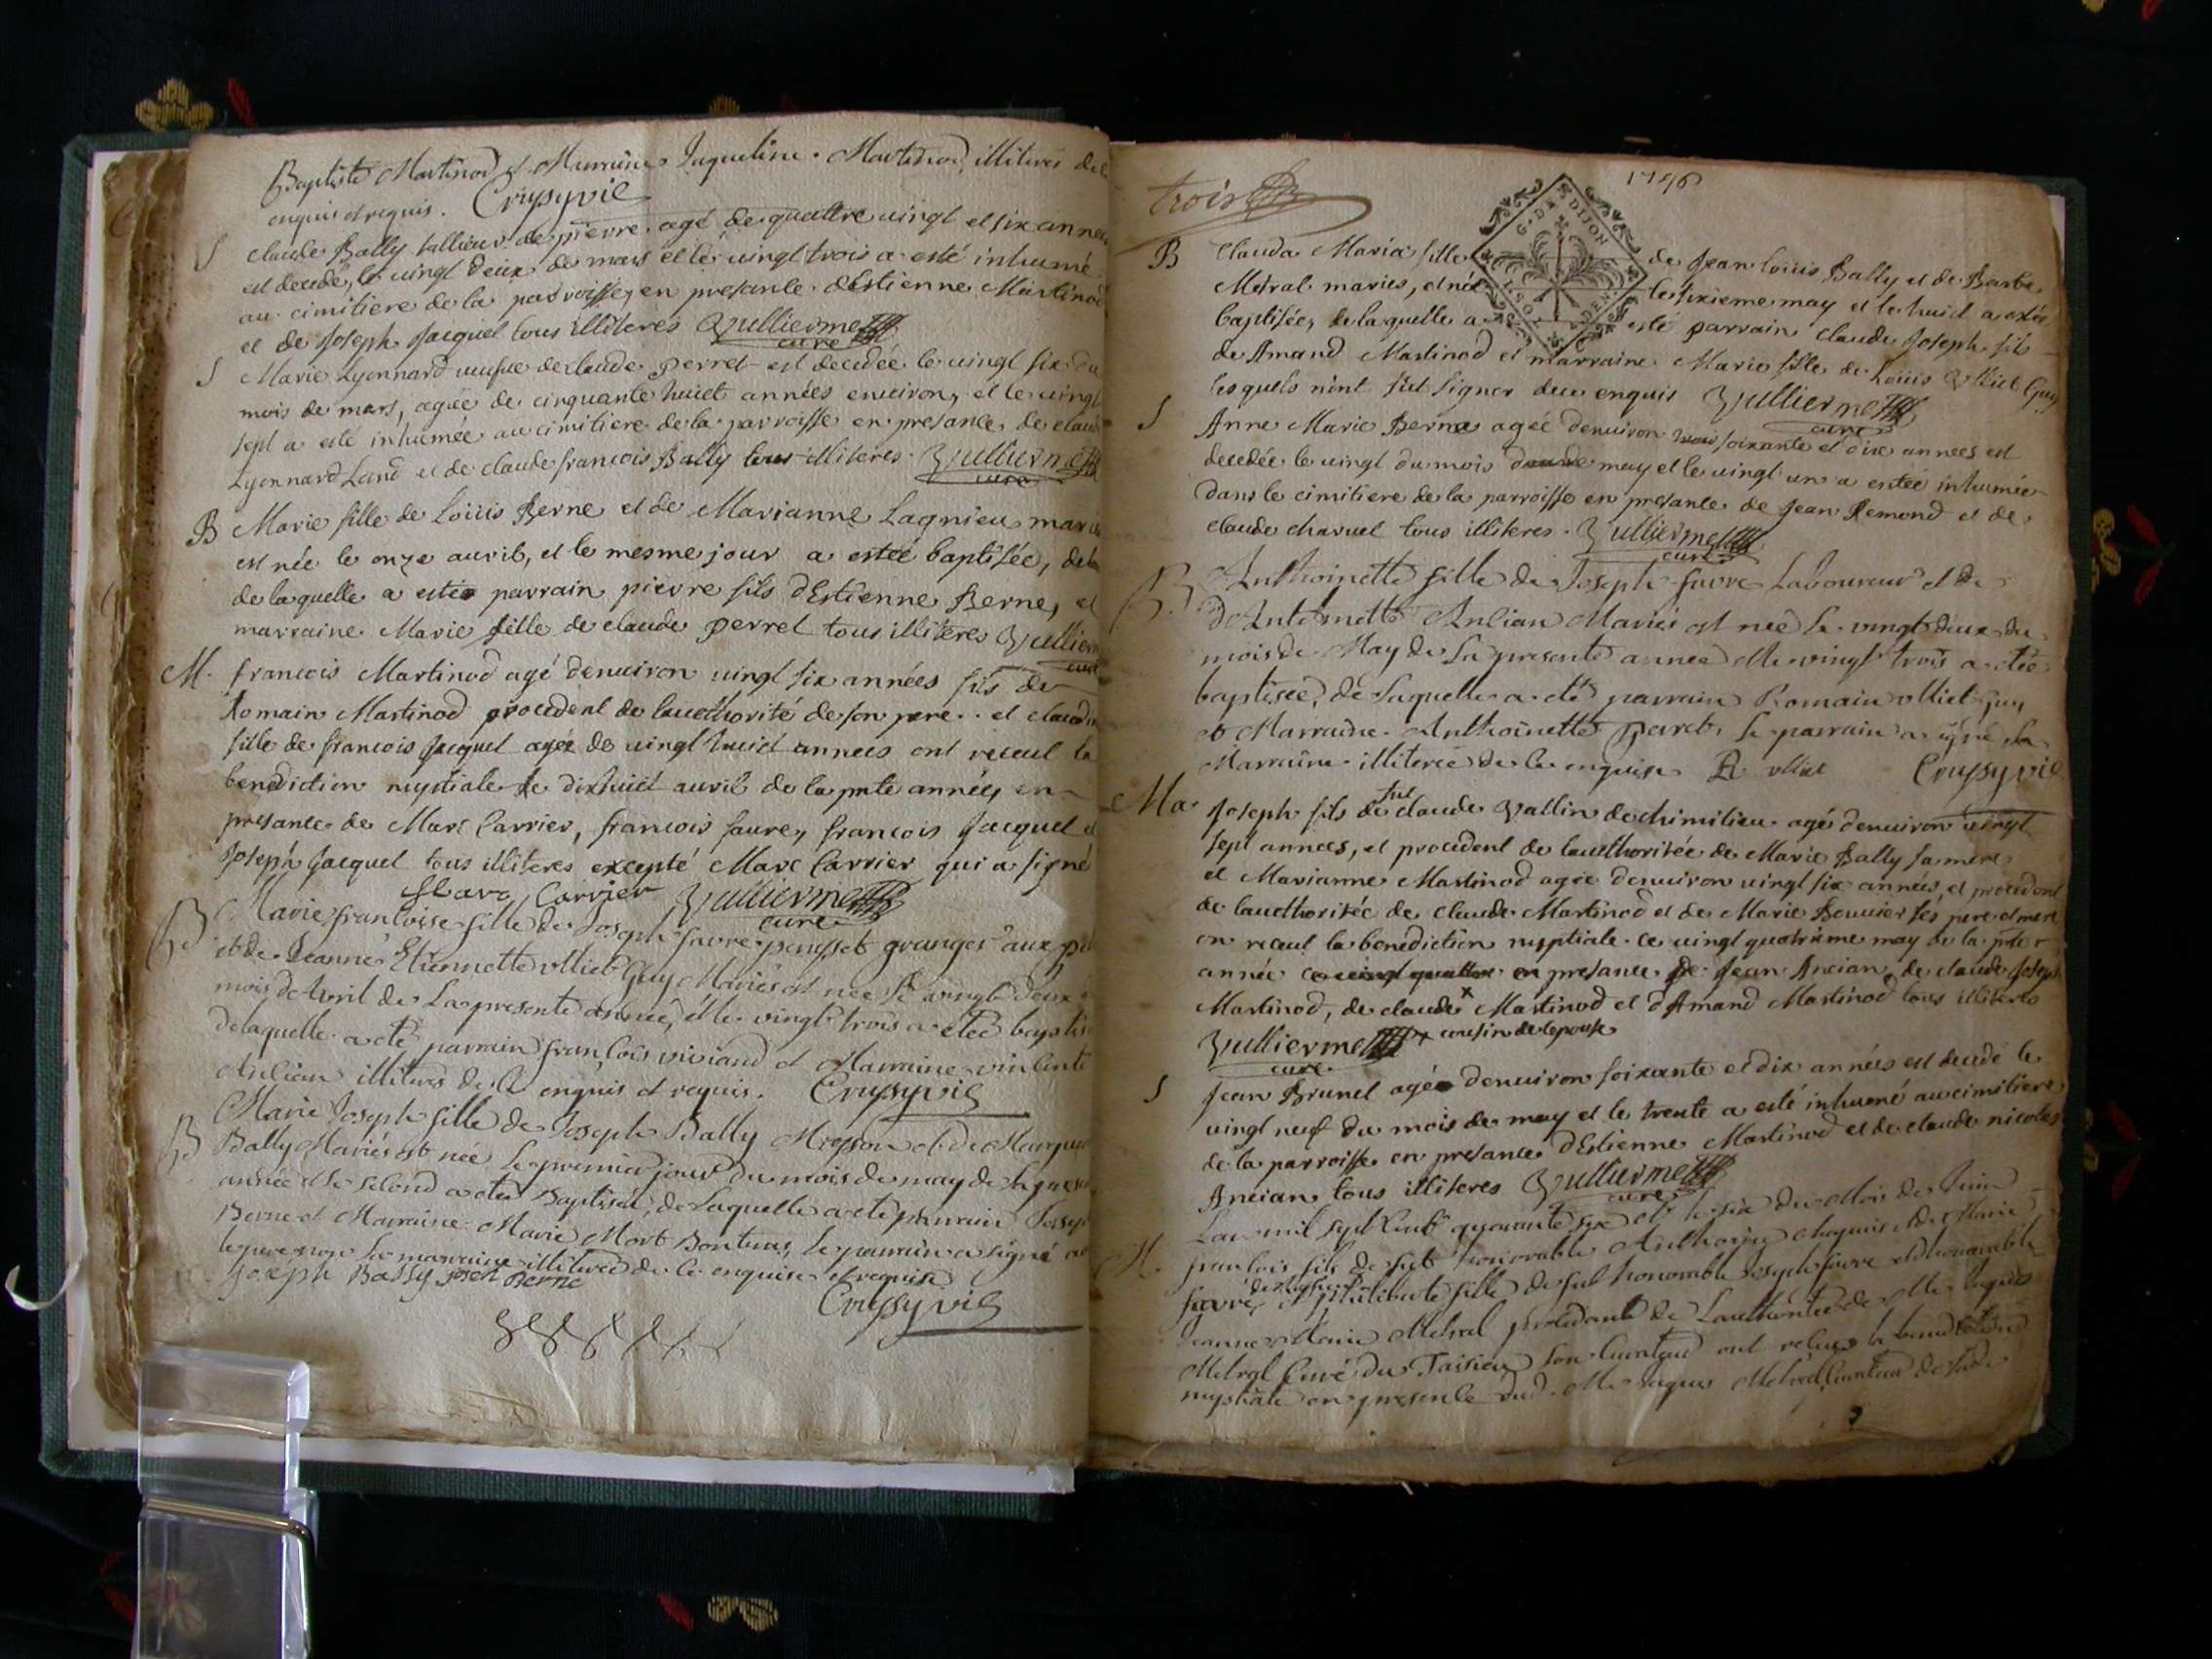 Baptiste Martinod et Marraine Jaqueline Martinod illiteres de
enquis et requis. Crussyvic
S Claude Bally tallieur de pierre agé de quattre vingt et six années
est decedé, le vingt deux de mars et le vingt trois a esté inhumé
au cimitiere de la parroisse, en presance d'Estienne Martinod
et de Joseph Jacquet tous illiteres Vullierme
curé
S Marie Lyonnard veufve de claude perret est decedée le vingt six du
mois de mars, agée de cinquante huict années environ, et le vingt
sept a esté inhumée au cimitiere de la parroisse en presance de claude
Lyonnard Land et de claude francois Bally tous illiteres. Vullierme
curé
B Marie fille de Loüis Berne et de Marianne Lagnieu mariés
est née le onze avril, et le mesme jour a esteé baptisée, de la
de laquelle a estée parrain pierre fils d'Estienne Berne, et
marraine Marie fille de claude perret tous illiteres Vullierme
curé
M. francois Martinod agé denviron vingt six années fils de
Romain Martinod procedent de lauthorité de son pere. et claudine
fille de francois Jacquet agée de vingt huict années ont receut la
benediction nuptiale le dixhuict avril de la pnte année, en
presance de Marc Carrier, francois faure, francois Jacquet et
Joseph Jacquet tous illiteres excepté Marc Carrier qui a signé
Marc Carrier Vullierme
curé
B Marie francoise fille de Joseph favre pensset granger aux
et de Jeanne Etiennette olliet Guy Mariés est née le vingt deux
mois de Avril de La presente année, et le vingt trois a eteé baptisé
de laquelle a eté parrain francois viviand et Marraine vincente
Ancian illiteres de ce enquis et requis. Crussyvic
B Marie Joseph fille de Joseph Bally Messon et de Marguerite
Bally Mariés est née le premier jour du mois de may de la presente
année et le second a eteé Baptiseé, de laquelle a eté parrain Joseph
Berne et Marraine Marie Mort Bontems, le parrain a signé avec
le pere non la marraine illitereé de ce enquise et requise
Joseph Bally Joseh Berne
Crussyvic
trois
1746
G. DE DIJON
B Clauda Maria fille de Jean Loüis Bally et de Barbe
Metral mariés, est née le sixieme may et le huict a estée
baptisée, de laquelle a esté parrain claude Joseph fils
de Amand Martinod et marraine Marie fille de Loüis olliet Guy
lesquels n'ont sut signer dece enquis Vullierme
curé
S Anne Marie Berne agée denviron soixante et dix années est
decedée le vingt du mois de may et le vingt un a estée inhumée
dans le cimitiere de la parroisse en presance de Jean Remond et de
claude charvet tous illiteres. Vullierme
curé
B. Anthoinette fille de Joseph favre Laboureur et de
D'Antoinette Ancian Mariés est née le vingt deux du
mois de May de La presente année et le vingt trois a eteé
baptiseé, de laquelle a eté parrain Romain olliet guy
et Marraine Anthoinette Perret, le parrain a signé la
Marraine illitereé de ce enquise R olliet Crussyvic
Ma. Joseph fils de fut claude Vallin de chimilieu agé denviron vingt
sept années, et procedent de lauthoritée de Marie Bally sa mere
et Marianne Martinod agée denviron vingt six années, et procedent
de lauthoritée de claude Martinod et de Marie Bouvier ses pere et mere
on receut la benediction nuptiale ce vingt quatrieme may de la pnte
année ce vingt quattre en presance de Jean Ancian, de claude Joseph
Martinod, de claude x Martinod et d'Amand Martinod tous illiteres
Vullierme x cousin de lepouse
curé
S Jean Brunet agée denviron soixante et dix années est decedé le
vingt neuf du mois de may et le trente a esté inhumé au cimitiere
de la parroisse en presance d'Estienne Martinod et de claude nicolas
Ancian tous illiteres Vullierme
curé
L'an mil sept cent quarante six et le six du Mois de Juin
M. francois fils de feut honorable Anthoine Chapuis et de Marie
favre, et fille de feut honorable Joseph favre et d'honorable
Jeanne Marie Metral procedante de Lauthoritee de Me Jaques
Metral Curé du Taisieu son curateur ont receus la benediction
nuptiale en presence dud. Me Jaques Metral, Curateur de lade